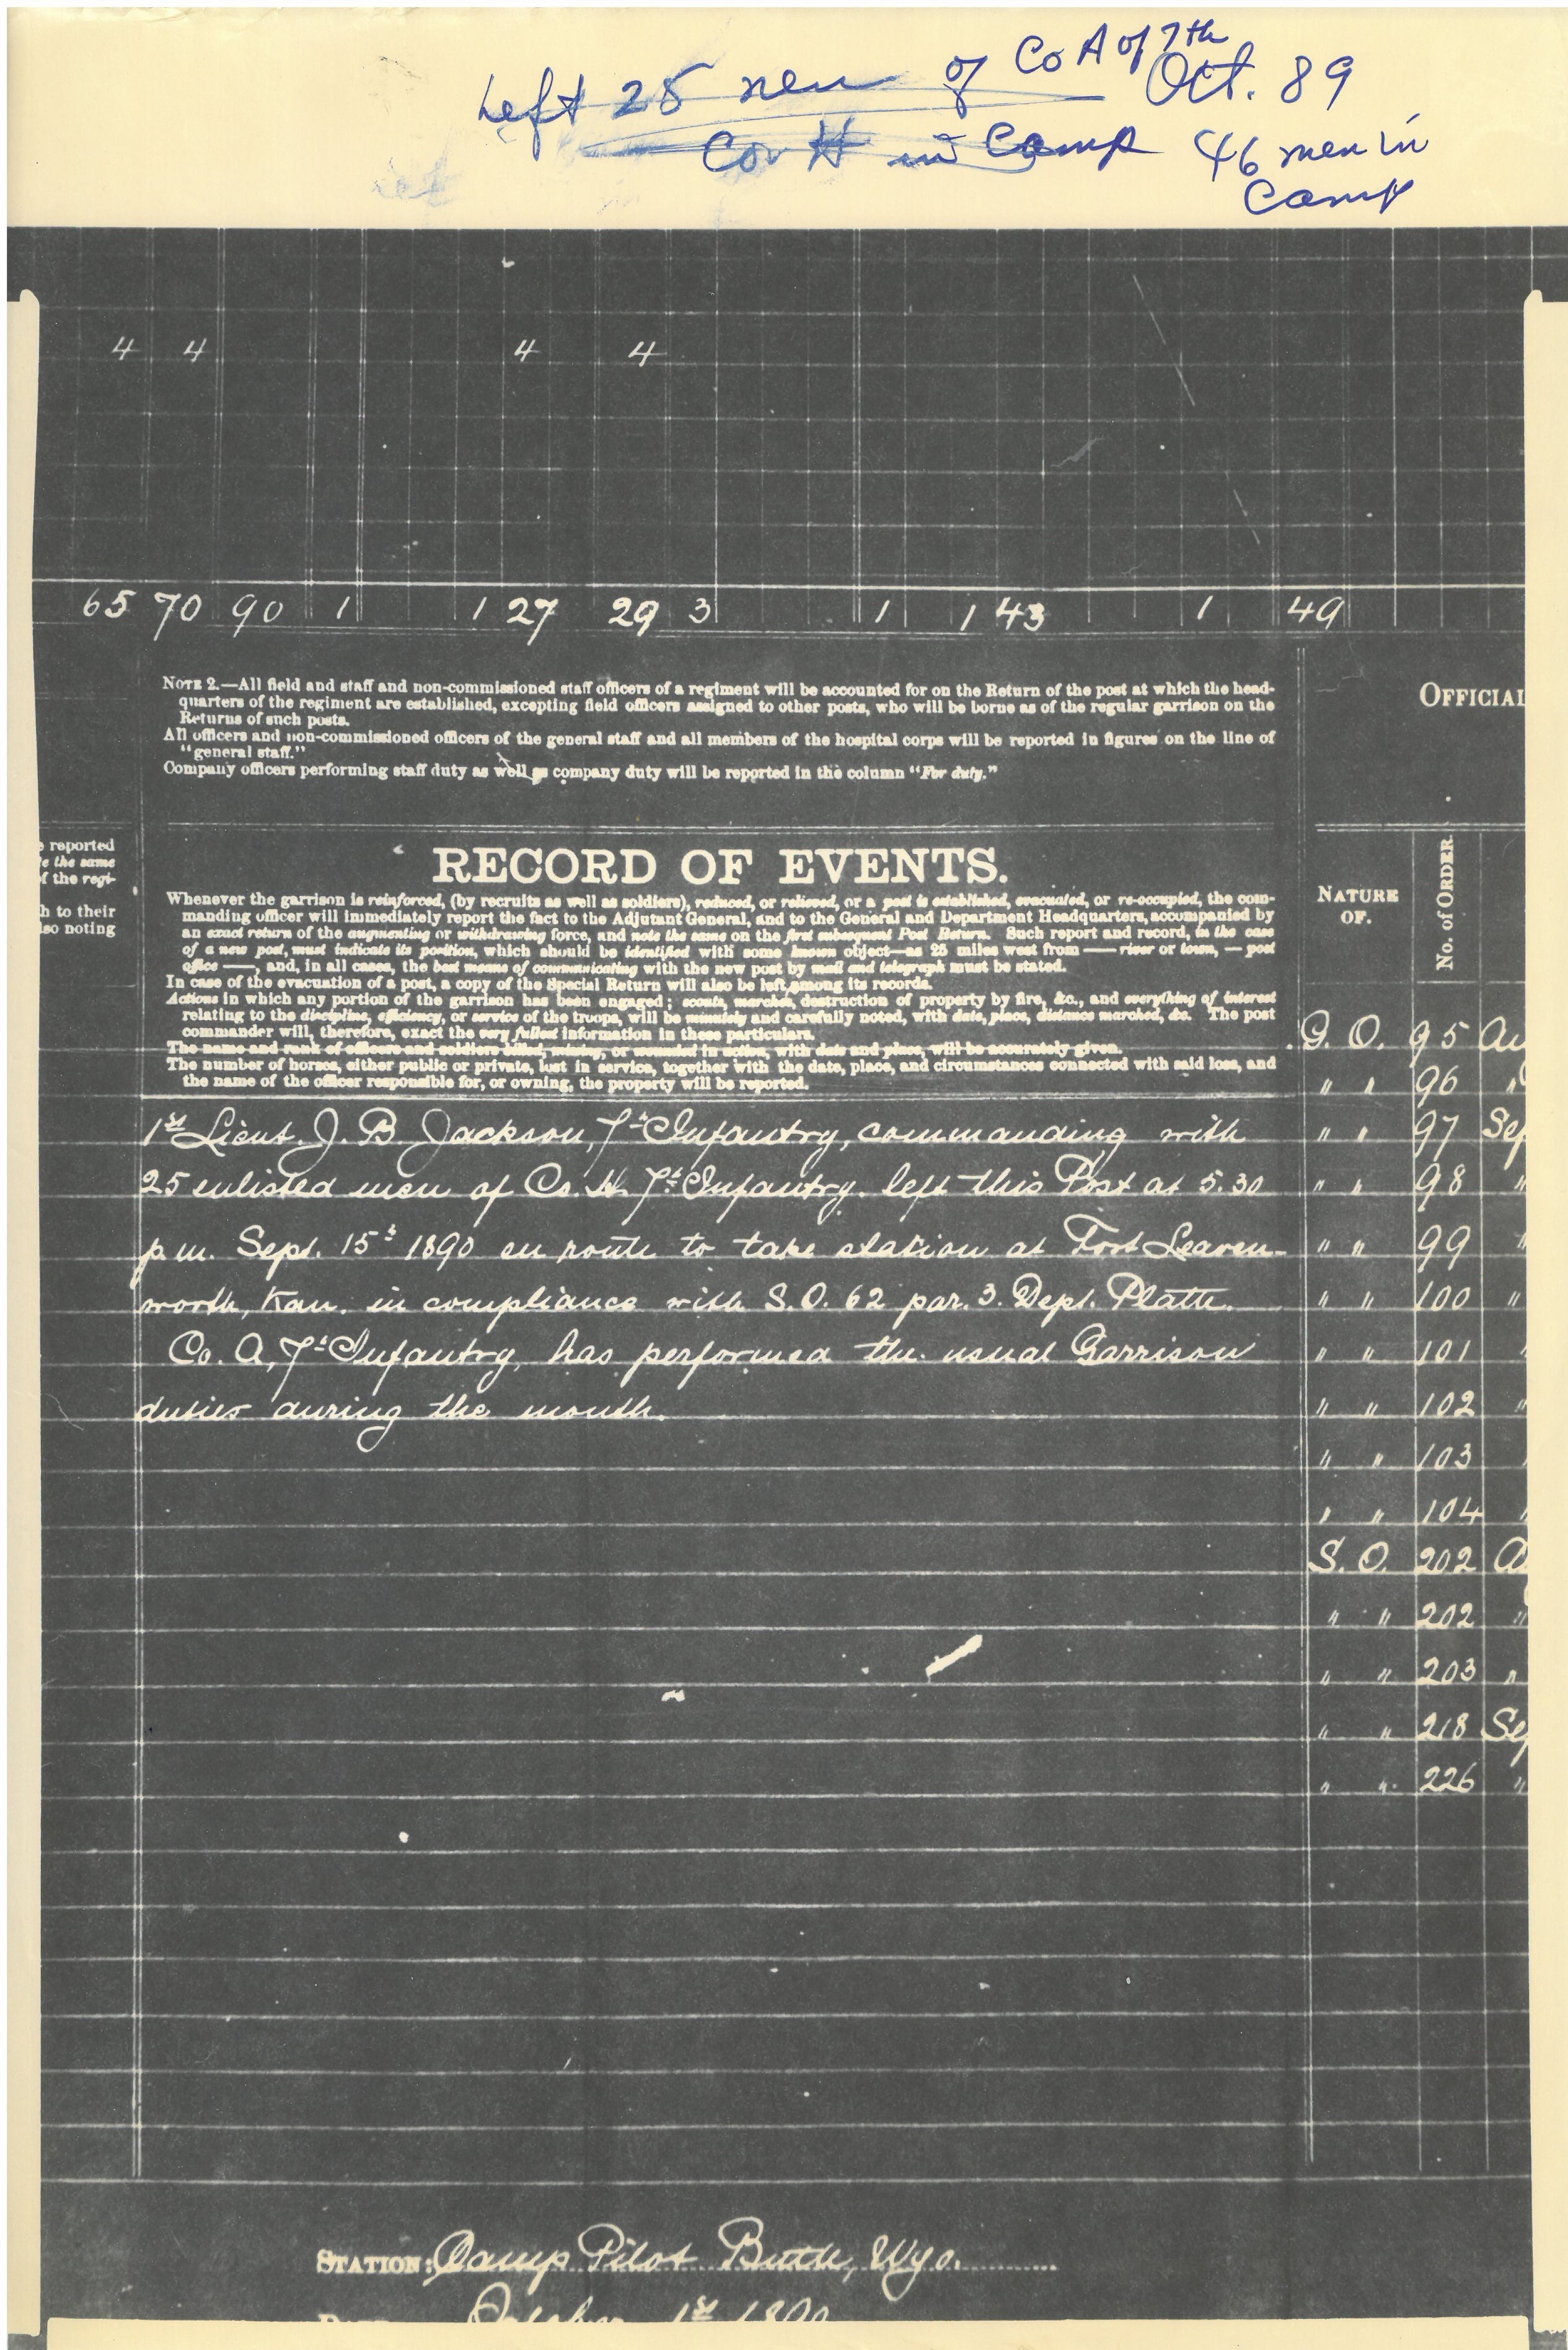 Left 25 men of Co A of 7th
Oct. 89
Co H in Camp 46 men in
Camp
4 4 4 4
65 70 90 1 1 27 29 3 1 1 43 1 49
NOTE 2.—All field and staff and non-commissioned staff officers of a regiment will be accounted for on the Return of the post at which the head-
quarters of the regiment are established, excepting field officers assigned to other posts, who will be borne as of the regular garrison on the
Returns of such posts.
All officers and non-commissioned officers of the general staff and all members of the hospital corps will be reported in figures on the line of
"general staff."
Company officers performing staff duty as well as company duty will be reported in the column "For duty."
OFFICIAL
reported
e the same
f the regi-
h to their
lso noting
RECORD OF EVENTS.
Whenever the garrison is reinforced, (by recruits as well as soldiers), reduced, or relieved, or a post is established, evacuated, or re-occupied, the com-
manding officer will immediately report the fact to the Adjutant General, and to the General and Department Headquarters, accompanied by
an exact return of the augmenting or withdrawing force, and note the same on the first subsequent Post Return. Such report and record, in the case
of a new post, must indicate its position, which should be identified with some known object—as 25 miles west from —— river or town, — post
office ——, and, in all cases, the best means of communicating with the new post by mail and telegraph must be stated.
In case of the evacuation of a post, a copy of the Special Return will also be left among its records.
Actions in which any portion of the garrison has been engaged; scouts, marches, destruction of property by fire, &c., and everything of interest
relating to the discipline, efficiency, or service of the troops, will be minutely and carefully noted, with date, place, distance marched, &c. The post
commander will, therefore, exact the very fullest information in these particulars.
The name and rank of officers and soldiers killed, missing, or wounded in action, with date and place, will be accurately given.
The number of horses, either public or private, lost in service, together with the date, place, and circumstances connected with said loss, and
the name of the officer responsible for, or owning, the property will be reported.
1st Lieut. J. B. Jackson, 7th Infantry, commanding with
25 enlisted men of Co. H. 7th Infantry. left this Post at 5.30
p.m. Sept. 15th 1890 en route to take station at Fort Leaven-
worth, Kan. in compliance with S.O. 62 par. 3. Dept. Platte.
Co. A, 7th Infantry, has performed the usual Garrison
duties during the month.
NATURE
OF.
No. of ORDER.
G. O. 95 Au
" " 96 "
" " 97 Sep
" " 98 "
" " 99 "
" " 100 "
" " 101 "
" " 102 "
" " 103 "
" " 104 "
S. O. 202 A
" " 202 "
" " 203 "
" " 218 Sep
" " 226 "
STATION: Camp Pilot Butte, Wyo.
DATE October 1st 1890